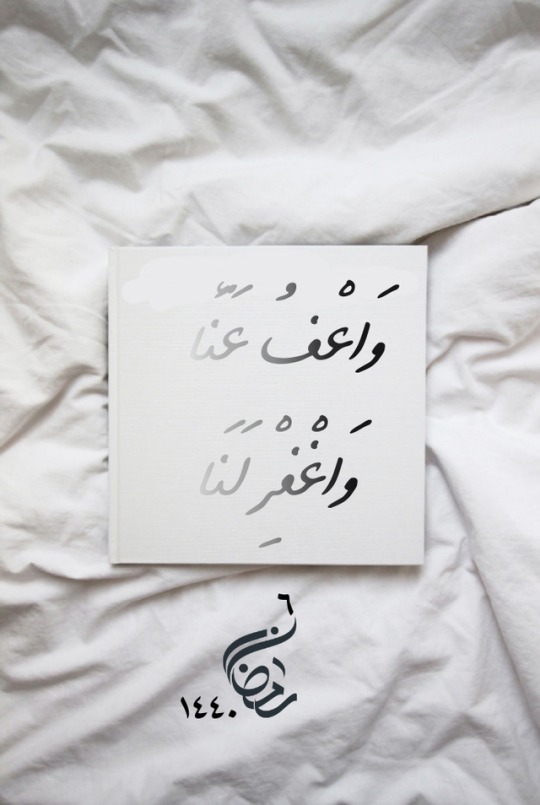 وَاعْفُ عَنَّا
وَاغْفِرْ لَنَا
٦
رمضان
١٤٤٠